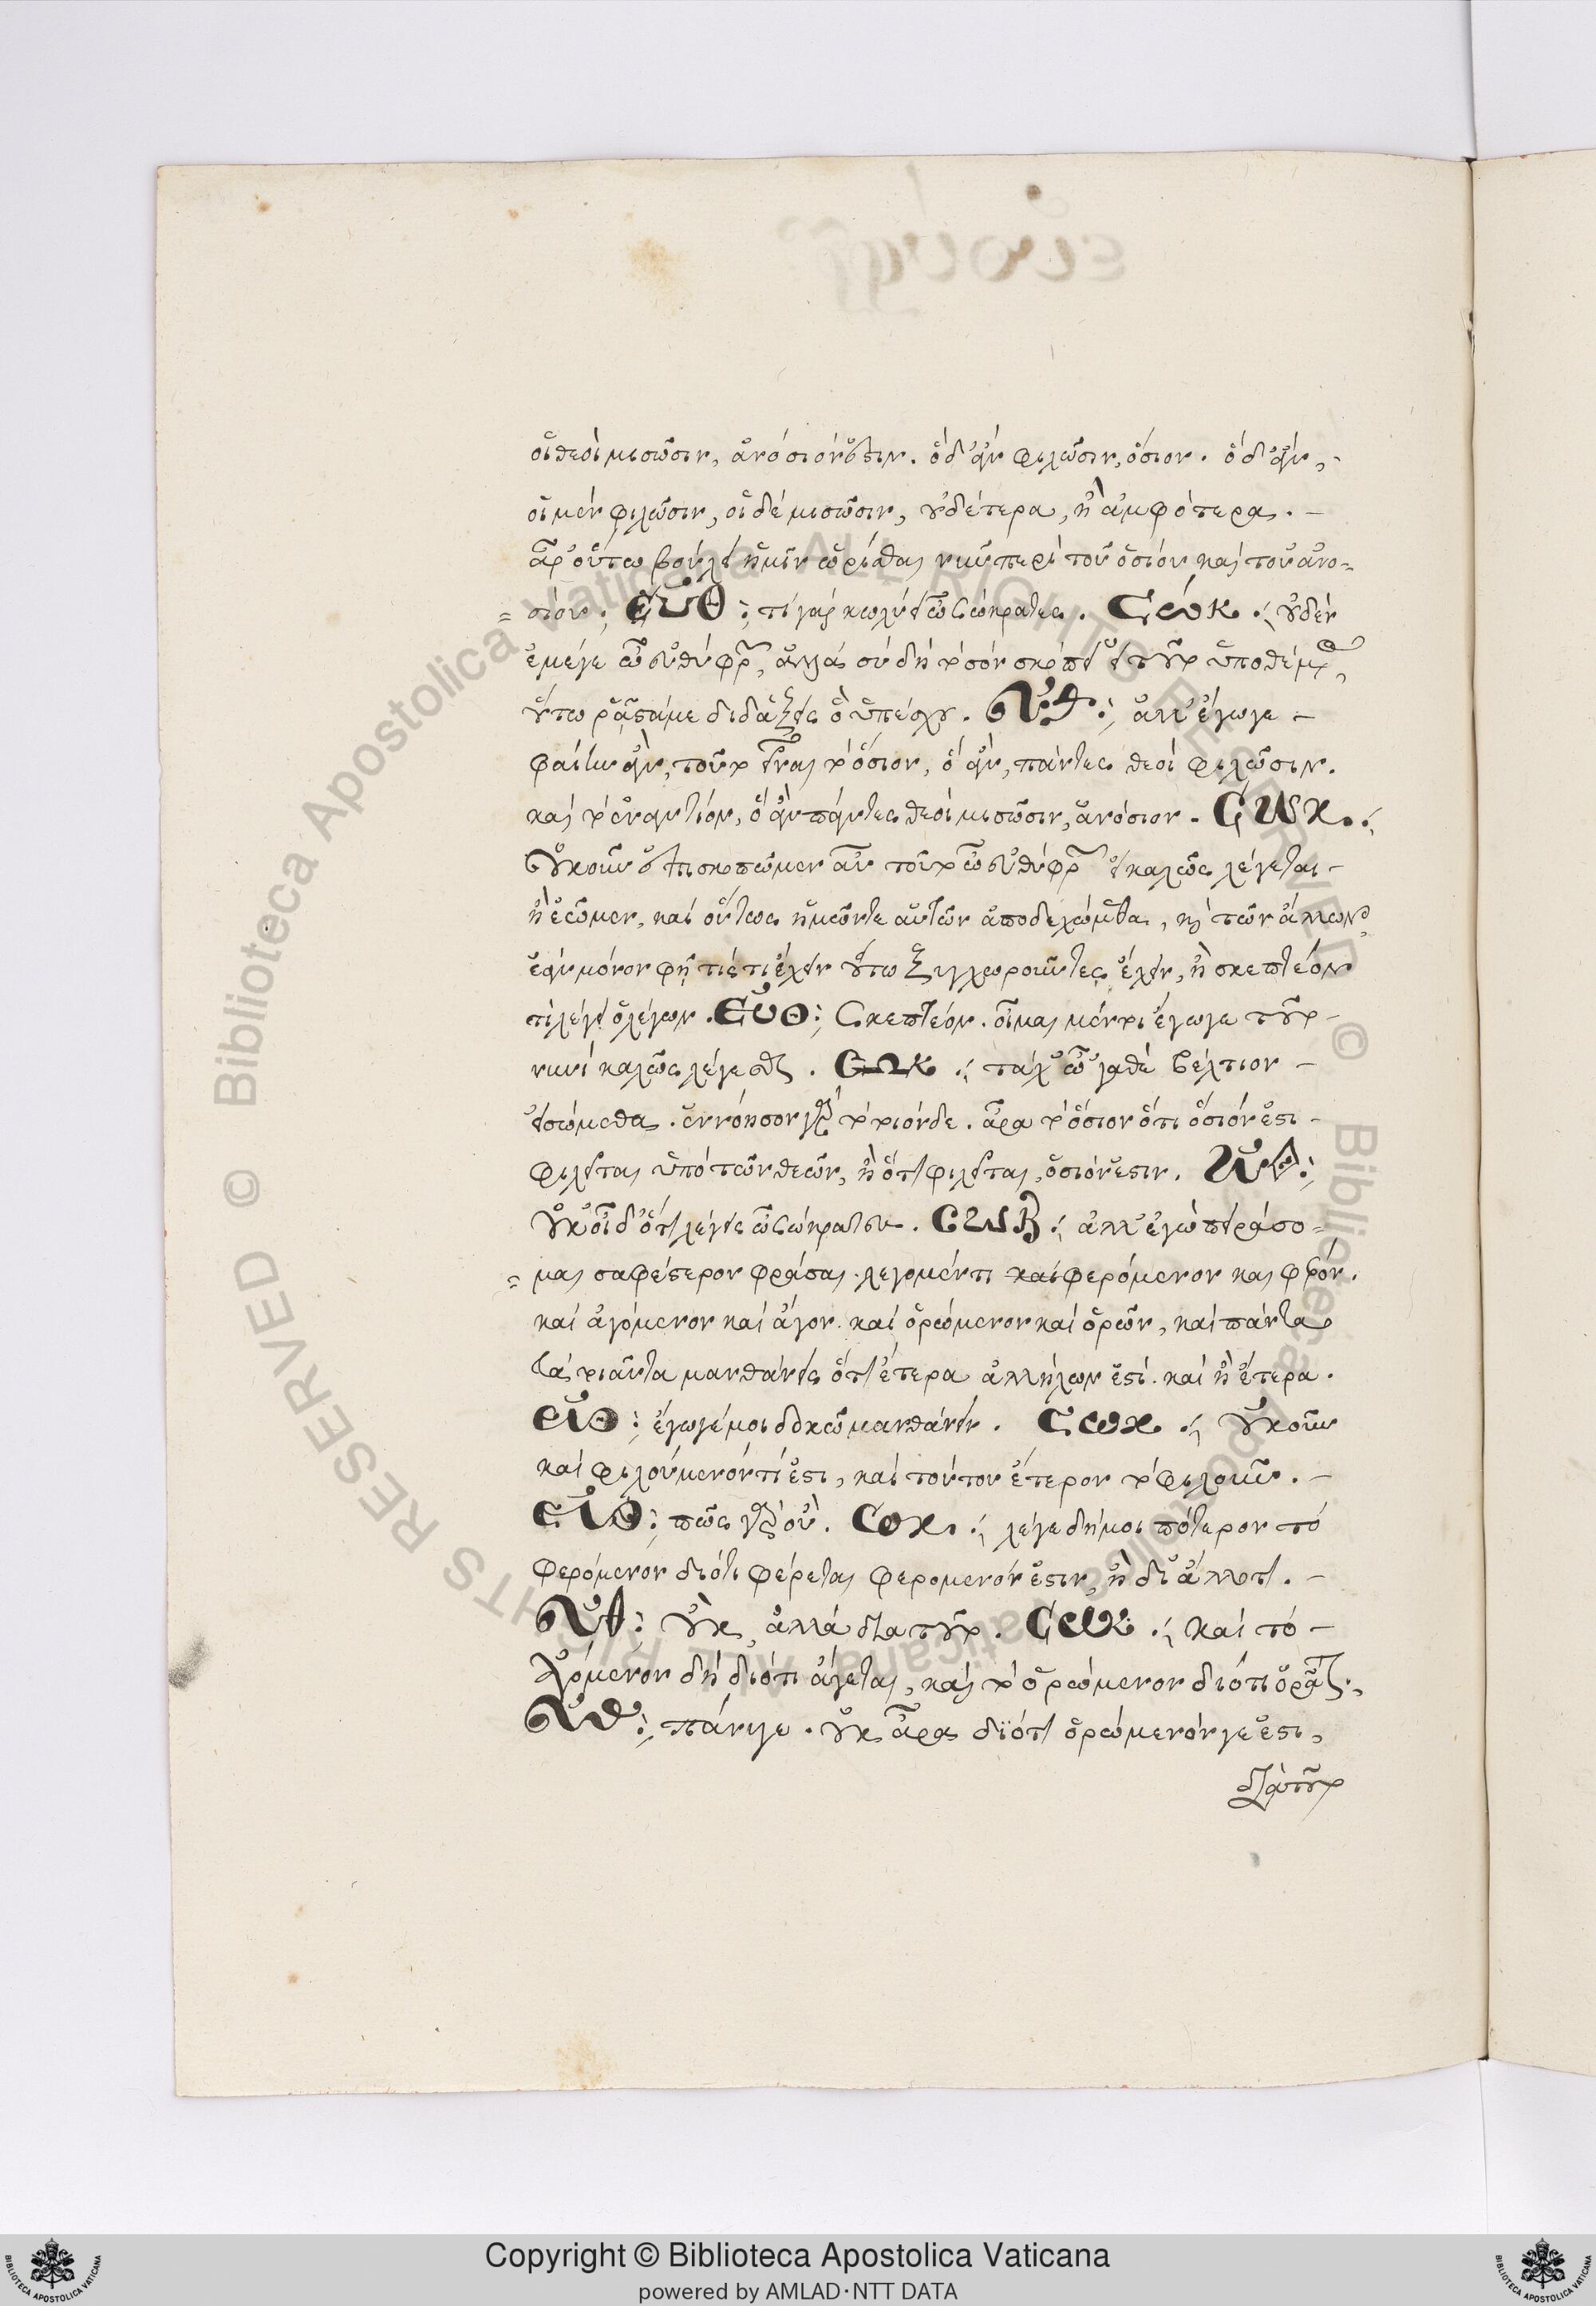 οἱ θεοὶ μισῶσιν, ἀνόσιόν ἐστιν. ὃ δ' ἂν φιλῶσιν, ὅσιον. ὃ δ' ἂν,
οἱ μὲν φιλῶσιν, οἱ δὲ μισῶσιν, οὐδέτερα, ἢ ἀμφότερα.
ἆρ' οὕτω βούλει ἡμῖν ὡρίσθαι νῦν περὶ τοῦ ὁσίου καὶ τοῦ ἀνο-
σίου; ΕΥΘ: τί γὰρ κωλύει ὦ Σώκρατες. ΣΩΚ: οὐδὲν
ἐμέ γε ὦ εὐθύφρων, ἀλλὰ σὺ δὴ τὸ σὸν σκόπει εἰ τοῦτο ὑποθέμενος,
οὕτω ῥᾷστά με διδάξεις ὃ ὑπέσχου. ΕΥΘ: ἀλλ' ἔγωγε
φαίην ἂν, τοῦτο εἶναι τὸ ὅσιον, ὃ ἂν, πάντες θεοὶ φιλῶσιν.
καὶ τὸ ἐναντίον, ὃ ἂν πάντες θεοὶ μισῶσιν, ἀνόσιον. ΣΩΚ:
οὐκοῦν ἐπισκοπῶμεν αὖ τοῦτο ὦ εὐθύφρων εἰ καλῶς λέγεται
ἢ ἐῶμεν, καὶ οὕτως ἡμῶν τε αὐτῶν ἀποδεχώμεθα, καὶ τῶν ἄλλων,
ἐὰν μόνον φῇ τίς τι ἔχειν οὕτω ξυγχωροῦντες ἔχειν, ἢ σκεπτέον
τί λέγει ὁ λέγων. ΕΥΘ: Σκεπτέον. οἶμαι μέντοι ἔγωγε τοῦτο
νυνὶ καλῶς λέγεσθαι. ΣΩΚ: τάχ' ὦ 'γαθὲ βέλτιον
εἰσόμεθα. ἐννόησον γὰρ τὸ τοιόνδε. ἆρα τὸ ὅσιον ὅτι ὅσιόν ἐστι
φιλεῖται ὑπὸ τῶν θεῶν, ἢ ὅτι φιλεῖται, ὅσιόν ἐστιν. ΕΥΘ:
οὐκ οἶδ' ὅτι λέγεις ὦ Σώκρατες. ΣΩΚ: ἀλλ' ἐγὼ πειράσο-
μαι σαφέστερον φράσαι. λέγομέν τι καὶ φερόμενον καὶ φέρον.
καὶ ἀγόμενον καὶ ἄγον. καὶ ὁρώμενον καὶ ὁρῶν, καὶ πάντα
τὰ τοιαῦτα μανθάνεις ὅτι ἕτερα ἀλλήλων ἐστί. καὶ ᾗ ἕτερα.
ΕΥΘ: ἔγωγέ μοι δοκῶ μανθάνειν. ΣΩΚ: οὐκοῦν
καὶ φιλούμενόν τί ἐστι, καὶ τούτου ἕτερον τὸ φιλοῦν.
ΕΥΘ: πῶς γὰρ οὔ. ΣΩΚ: λέγε δή μοι πότερον τὸ
φερόμενον διότι φέρεται φερόμενόν ἐστιν, ἢ δι' ἄλλο τι.
ΕΥΘ: οὐκ, ἀλλὰ διὰ τοῦτο. ΣΩΚ: καὶ τὸ
ἀγόμενον δὴ διότι ἄγεται, καὶ τὸ ὁρώμενον διότι ὁρᾶται.
ΕΥΘ: πάνυγε. οὐκ ἄρα διότι ὁρώμενόν γε ἐστι,
διὰ τοῦτο
Copyright © Biblioteca Apostolica Vaticana
powered by AMLAD·NTT DATA